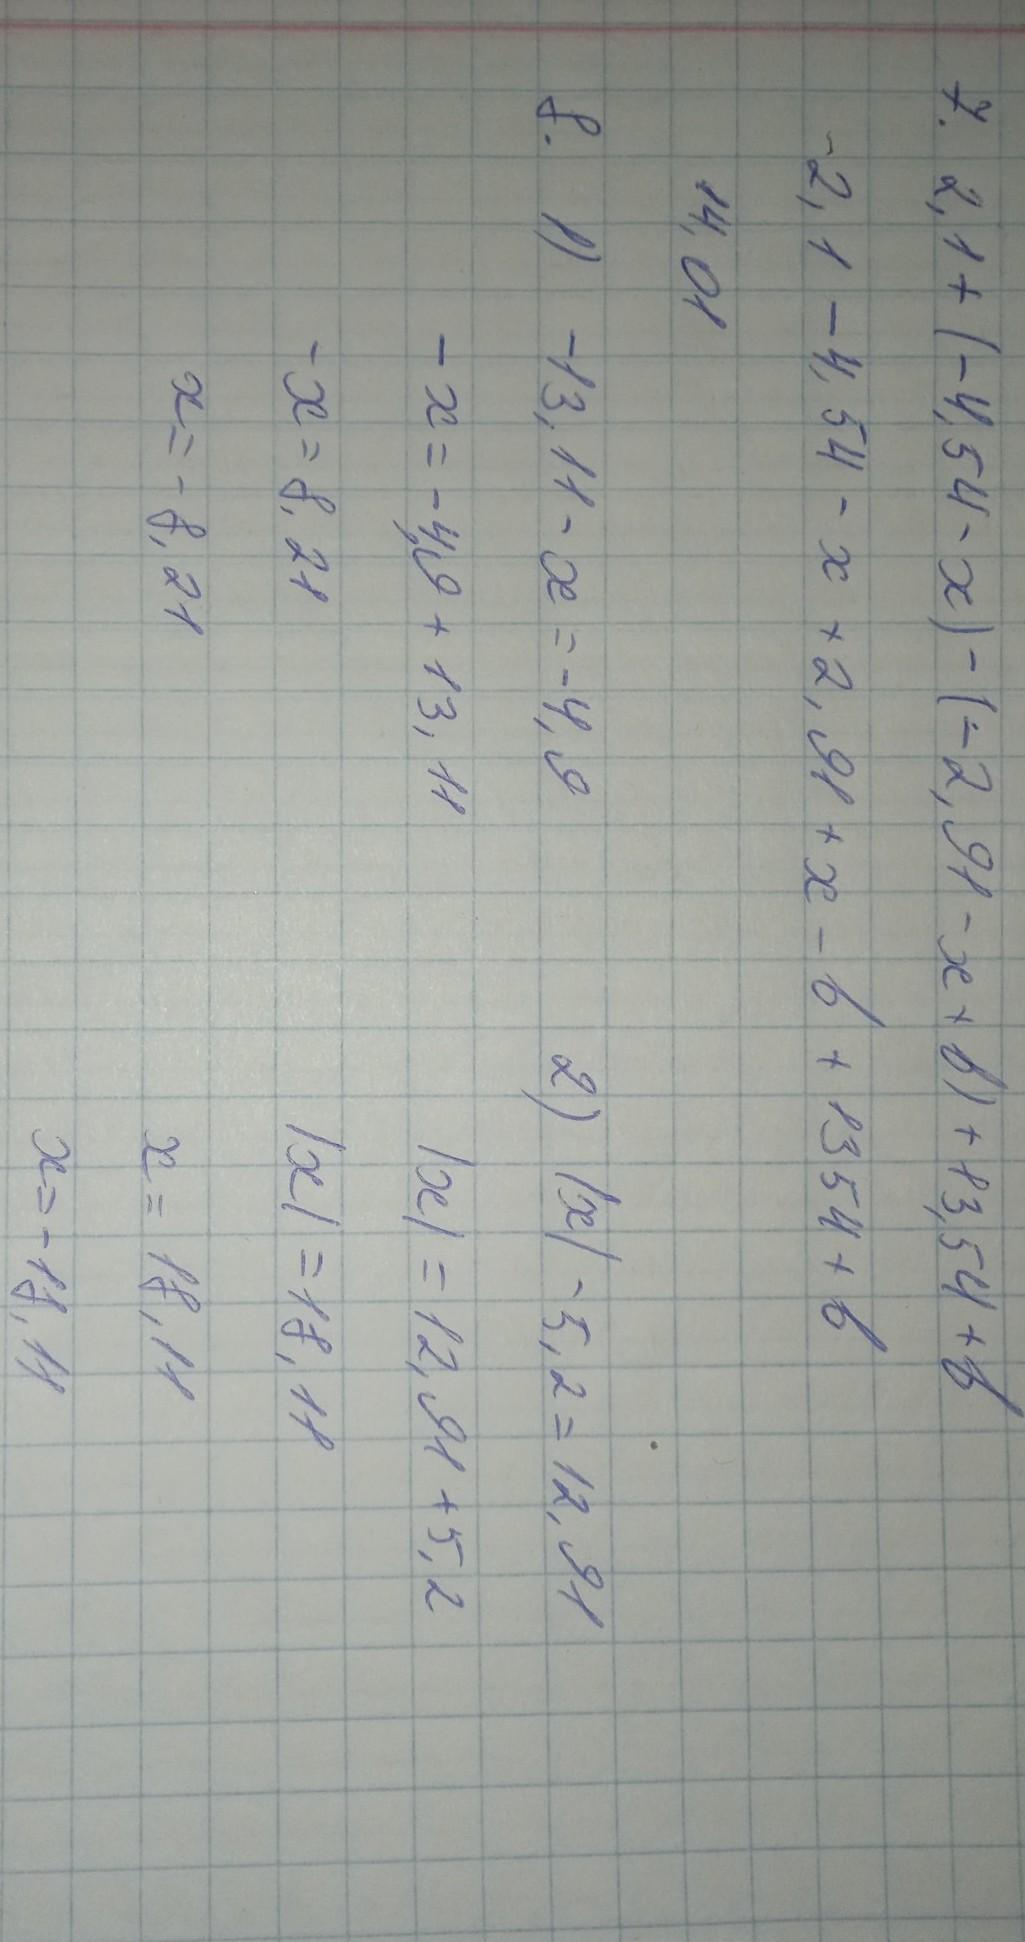 7. 2,1 + (-4,54 - x) - (-2,91 - x + b) + 13,54 + b
-2,1 - 4,54 - x + 2,91 + x - b + 1354 + b
14,01
8. 1) -13,11 - x = -4,9
-x = -4,9 + 13,11
-x = 8,21
x = -8,21
2) |x| - 5,2 = 12,91
|x| = 12,91 + 5,2
|x| = 18,11
x = 18,11
x = -18,11